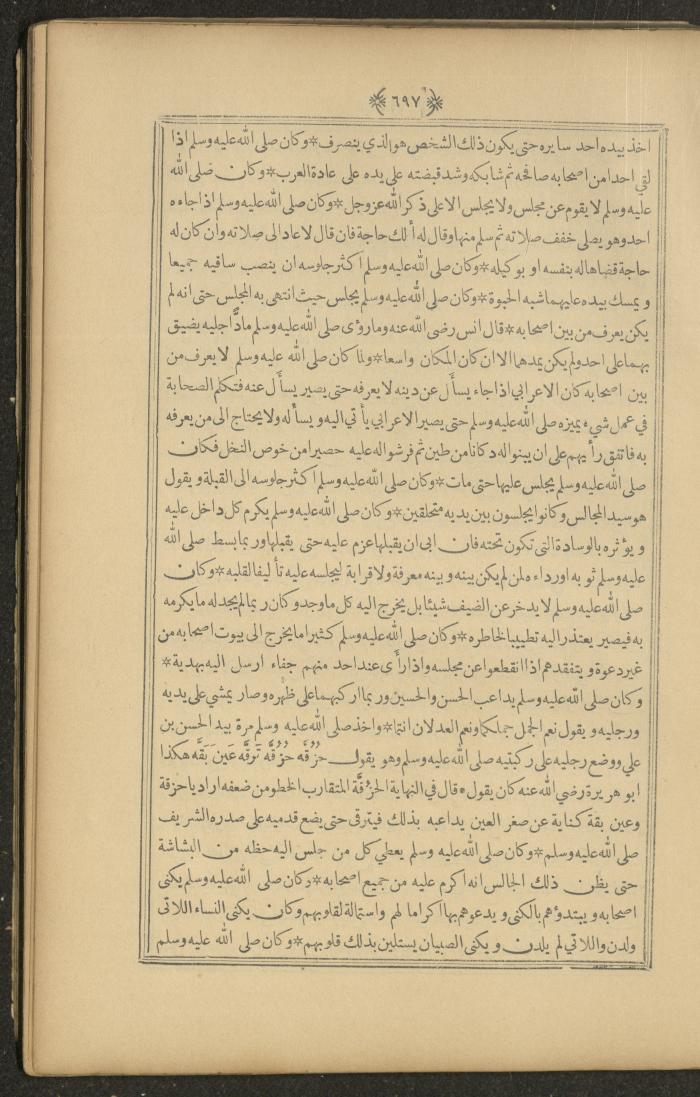 ﴿٦٩٧﴾
اخذ بيده احد سايره حتى يكون ذلك الشخص هو الذي ينصرف * وكان صلى الله عليه وسلم اذا
لقي احدا من اصحابه صافحه ثم شابكه وشد قبضته على يده على عادة العرب * وكان صلى الله
عليه وسلم لا يقوم عن مجلس ولا يجلس الا على ذكر الله عز وجل * وكان صلى الله عليه وسلم اذا جاءه
احد وهو يصلى خفف صلاته ثم سلم منها وقال له ألك حاجة فان قال لا عاد الى صلاته وان كان له
حاجة قضاها له بنفسه او بوكيله * وكان صلى الله عليه وسلم اكثر جلوسه ان ينصب ساقيه جميعا
ويمسك بيده عليهما شبه الحبوة * وكان صلى الله عليه وسلم يجلس حيث انتهى به المجلس حتى انه لم
يكن يعرف من بين اصحابه * قال انس رضى الله عنه وما رؤى صلى الله عليه وسلم مادًّا رجليه يضيق
بهما على احد ولم يكن يمدهما الا ان كان المكان واسعا * ولما كان صلى الله عليه وسلم لا يعرف من
بين اصحابه كان الاعرابي اذا جاء يسأل عن دينه لا يعرفه حتى يصير يسأل عنه فتكلم الصحابة
في عمل شيء يميزه صلى الله عليه وسلم حتى يصير الاعرابي يأتي اليه ويسأله ولا يحتاج الى من يعرفه
به فاتفق رأيهم على ان يبنوا له دكانا من طين ثم فرشوا له عليه حصيرا من خوص النخل فكان
صلى الله عليه وسلم يجلس عليها حتى مات * وكان صلى الله عليه وسلم اكثر جلوسه الى القبلة ويقول
هو سيد المجالس وكانوا يجلسون بين يديه متحلقين * وكان صلى الله عليه وسلم يكرم كل داخل عليه
ويؤثره بالوسادة التى تكون تحته فان ابى ان يقبلها عزم عليه حتى يقبلها وربما بسط صلى الله
عليه وسلم ثوبه او رداءه لمن لم يكن بينه وبينه معرفة ولا قرابة ليجلسه عليه تأليفا لقلبه * وكان
صلى الله عليه وسلم لا يدخر عن الضيف شيئا بل يخرج اليه كل ما وجد وكان ربما لم يجد له ما يكرمه
به فيصير يعتذر اليه تطييبا لخاطره * وكان صلى الله عليه وسلم كثيرا ما يخرج الى بيوت اصحابه من
غير دعوة ويتفقدهم اذا انقطعوا عن مجلسه واذا رأى عند احد منهم جفاء ارسل اليه بهدية *
وكان صلى الله عليه وسلم يداعب الحسن والحسين وربما اركبهما على ظهره وصار يمشي على يديه
ورجليه ويقول نعم الجمل جملكما ونعم العدلان انتما * واخذ صلى الله عليه وسلم مرة بيد الحسن بن
علي ووضع رجليه على ركبتيه صلى الله عليه وسلم وهو يقول حُزُقَّه حُزُقَّه تَرَقَّه عَين بَقَّه هكذا
ابو هريرة رضي الله عنه كان يقول * قال في النهاية الحزقة المتقارب الخطو من ضعفه اراد يا حزقة
وعين بقة كناية عن صغر العين يداعبه بذلك فيترقى حتى يضع قدميه على صدره الشريف
صلى الله عليه وسلم * وكان صلى الله عليه وسلم يعطي كل من جلس اليه حظه من البشاشة
حتى يظن ذلك الجالس انه اكرم عليه من جميع اصحابه * وكان صلى الله عليه وسلم يكنى
اصحابه ويبتدؤهم بالكنى ويدعوهم بها اكراما لهم واستمالة لقلوبهم وكان يكنى النساء اللاتى
ولدن واللاتي لم يلدن ويكنى الصبيان يستلين بذلك قلوبهم * وكان صلى الله عليه وسلم